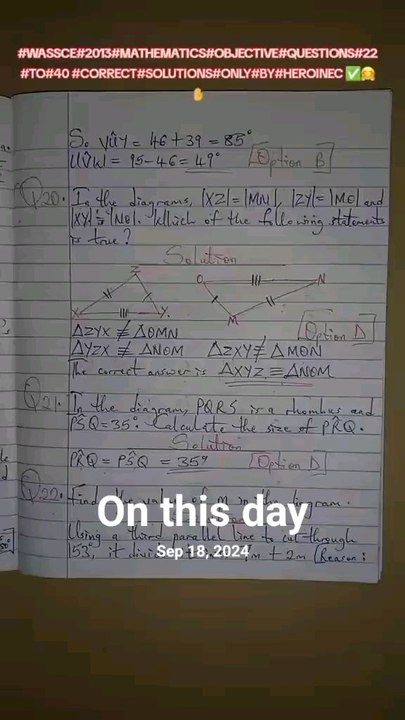 #WASSCE#2013#MATHEMATICS#OBJECTIVE#QUESTIONS#22
#TO#40 #CORRECT#SOLUTIONS#ONLY#BY#HEROINEC ✅🤗
✋
So VÛY = 46 + 39 = 85°
UV̂W = 95 - 46 = 49° Option B
Q20. In the diagrams, |XZ| = |MN|, |ZY| = |MO| and
|XY| = |NO|. Which of the following statements
is true?
Solution
Z O N
X Y M
ΔZYX ≢ ΔOMN Option D
ΔYZX ≢ ΔNOM ΔZXY ≢ ΔMON
The correct answer is ΔXYZ ≡ ΔNOM
Q21. In the diagram, PQRS is a rhombus and
PŜQ = 35°. Calculate the size of PR̂Q.
Solution
PR̂Q = PŜQ = 35° Option D
Q22. Find the value of m in the diagram.
On this day
Using a third parallel line to cut through
Sep 18, 2024
153°, it m + 2m (Reason: